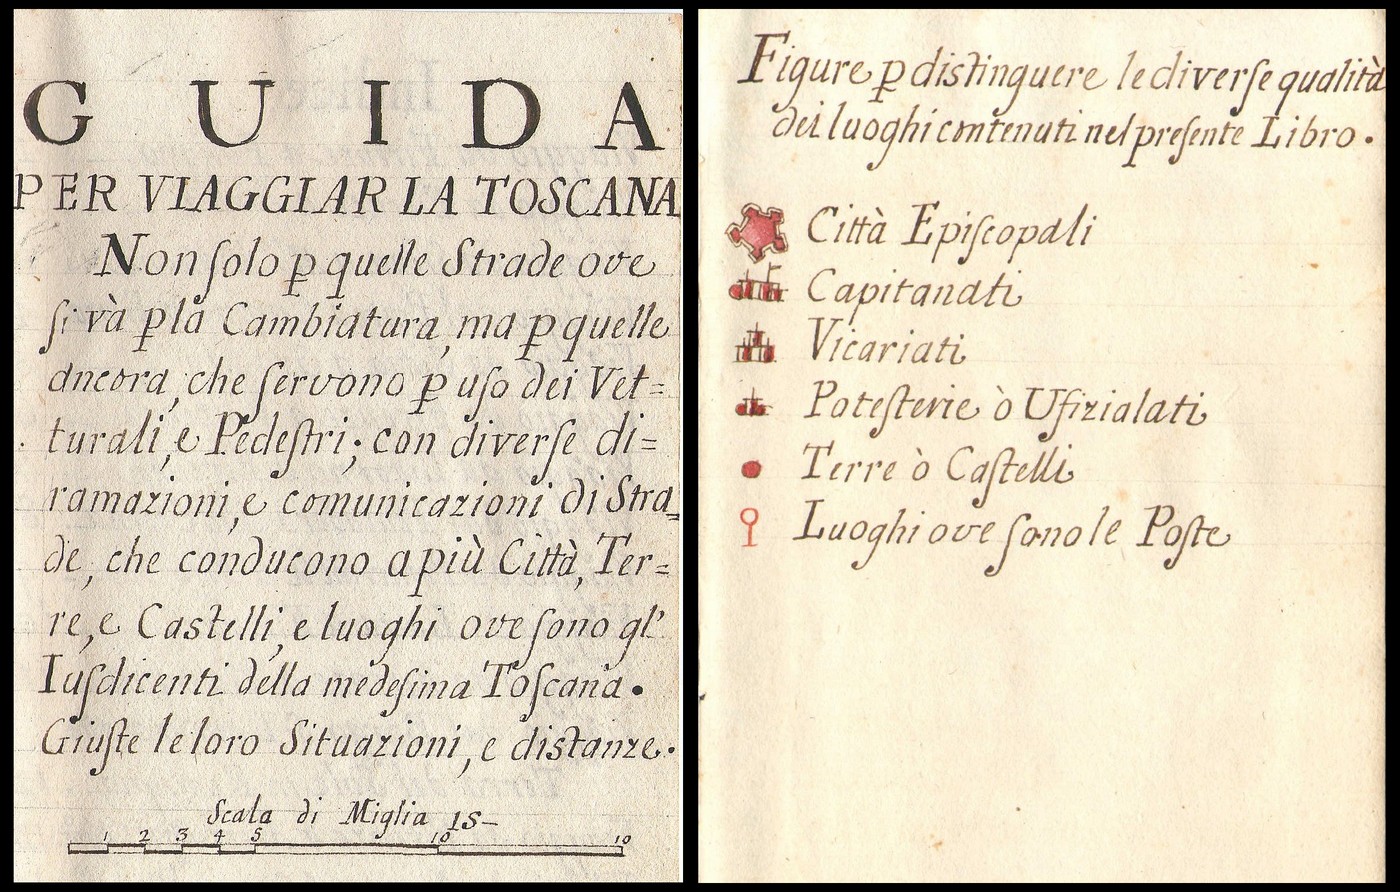 GUIDA
PER VIAGGIAR LA TOSCANA
Non ſolo ꝑ quelle Strade ove
ſi và ꝑ la Cambiatura, ma ꝑ quelle
ancora, che ſervono ꝑ uſo dei Vet=
turali, e Pedeſtri; con diverſe di=
ramazioni, e comunicazioni di Stra=
de, che conducono a più Città, Ter=
re, e Castelli, e luoghi ove ſono gl'
Iuſdicenti della medeſima Toſcana.
Giuſte le loro Situazioni, e distanze.
Scala di Miglia 15–
1 2 3 4 5 10 10
Figure ꝑ distinguere le diverſe qualità
dei luoghi contenuti nel preſente Libro.
Città Epiſcopali
Capitanati
Vicariati
Poteſterie ò Ufizialati
Terre ò Caſtelli
Luoghi ove ſono le Poſte